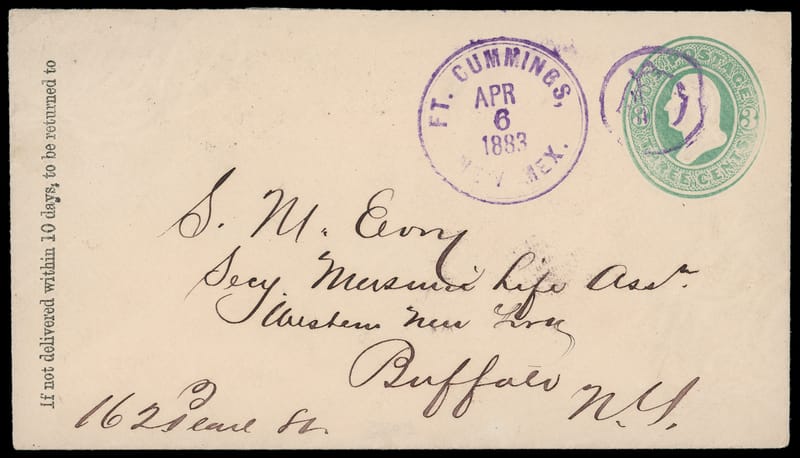 If not delivered within 10 days, to be returned to
FT. CUMMINGS,
APR
6
1883
NEW MEX.
U.S. POSTAGE
3 3
THREE CENTS
S. M. Evory
Secy. Masonic Life Assn.
Western New York
Buffalo
N.Y.
162 Pearl St.